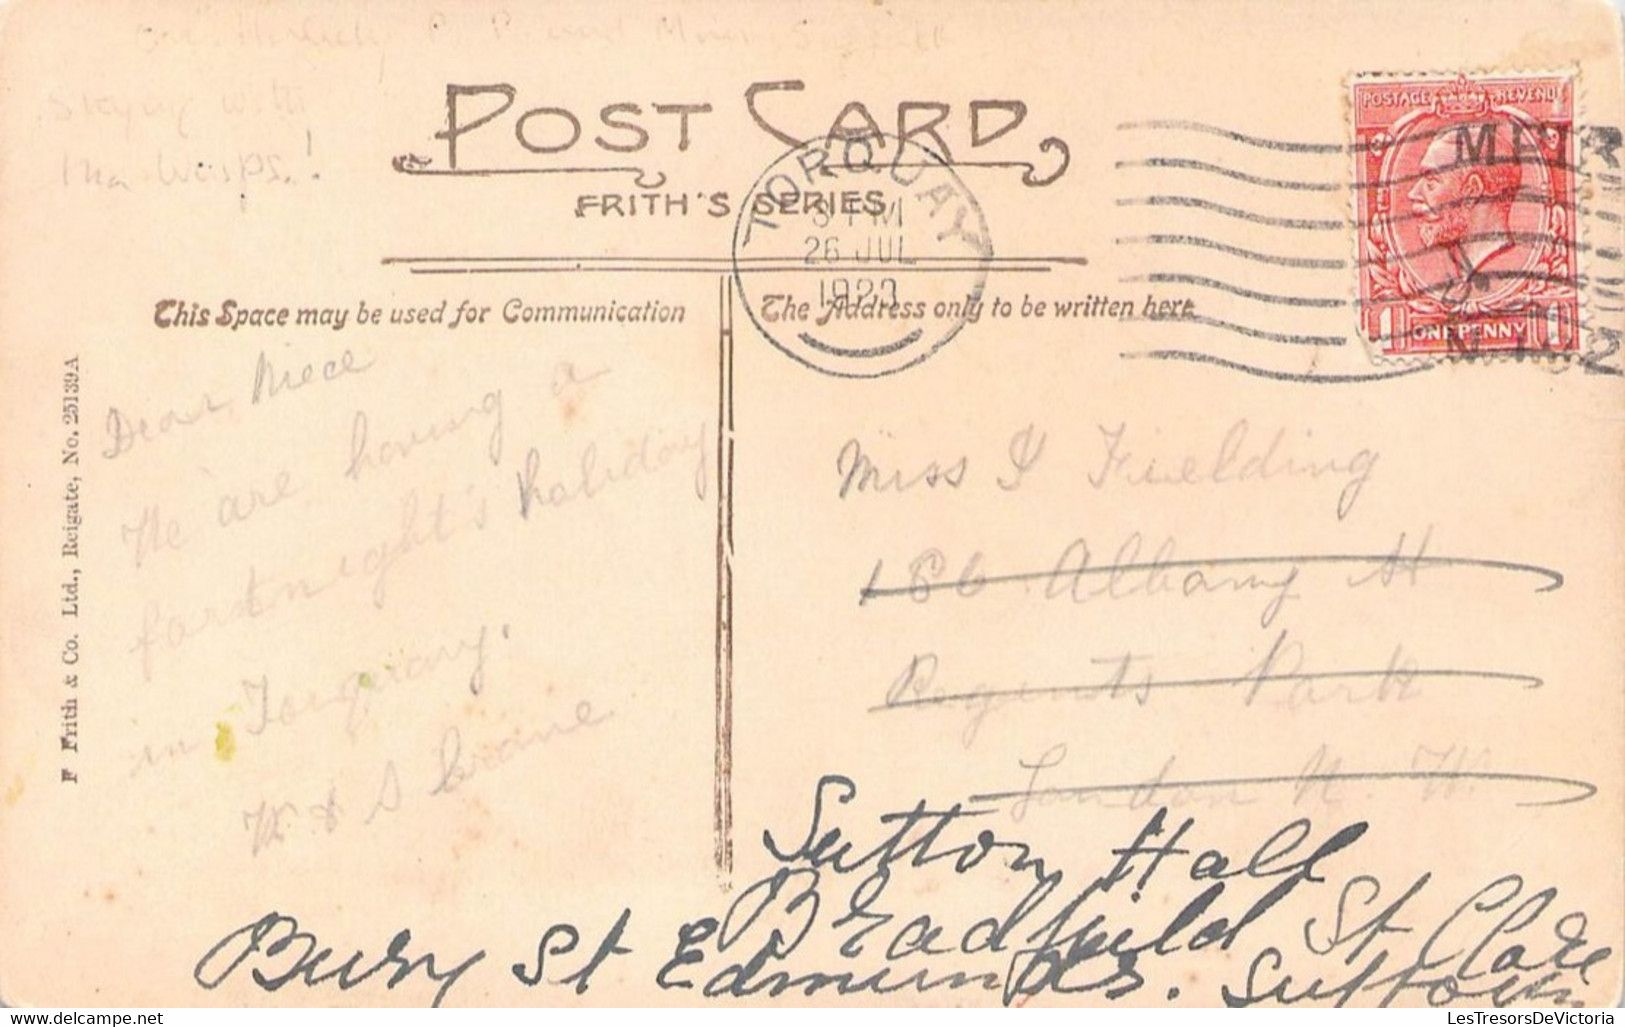 Staying with
the Wisps.!
POST CARD
FRITH'S SERIES
TORQUAY
26 JUL
POSTAGE REVENUE
1 ONE PENNY 1
This Space may be used for Communication
The Address only to be written here
F Frith & Co. Ltd., Reigate, No. 25139A
Dear Niece
We are having a
fortnight's holiday
in Torquay.
W & S
Miss I Fielding
186 Albany St
Regents Park
London N. W.
Sutton Hall
Bradfield St Clare
Bury St Edmunds. Suffolk
LesTresorsDeVictoria